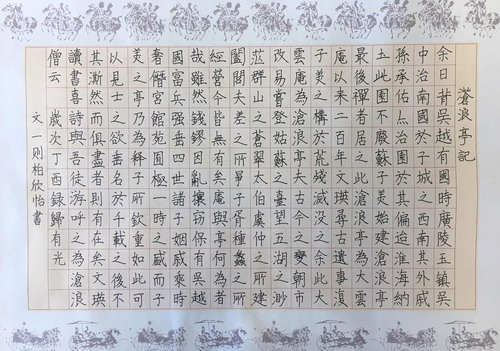 滄浪亭記
余曰昔吳越有國時廣陵王鎮吳
中治南園於子城之西南其外戚
孫承佑亦治園於其偏迨淮海納
土此園不廢蘇子美始建滄浪亭
最後禪者居之此滄浪亭為大雲
庵以來二百年文瑛尋古遺事復
子美之構於荒殘滅沒之余此大
雲庵為滄浪亭夫古今之變朝市
改易嘗登姑蘇之臺望五湖之渺
茫群山之蒼翠太伯虞仲之所建
闔閭夫差之所爭子胥種蠡之所
經營今皆無有矣庵與亭何為者
哉雖然錢鏐因亂攘竊保有吳越
國富兵强垂四世諸子姻戚乘時
奢僭宮館苑囿極一時之盛而子
美之亭乃為釋子所欽重如此可
以見士之欲垂名於千載之後不
其澌然而俱盡者則有在矣文瑛
讀書喜詩與吾徒游呼之為滄浪
僧云 歲次丁酉錄歸有光
文一則柏欣怡書